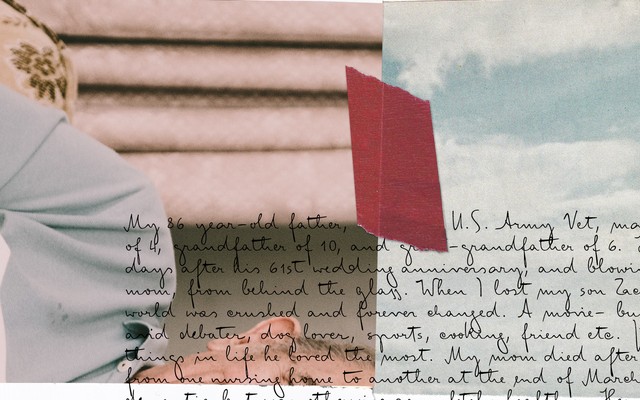 My 86 year-old father, U.S. Army Vet,
of 4, grandfather of 10, and -grandfather of 6.
days after his 61st wedding anniversary, and
mom, from behind the glass. When I lost my son
world was crushed and forever changed. A movie-
and debater, dog lover, sports, cooking, friend etc.
things in life he loved the most. My mom died after
from one nursing home to another at the end of March